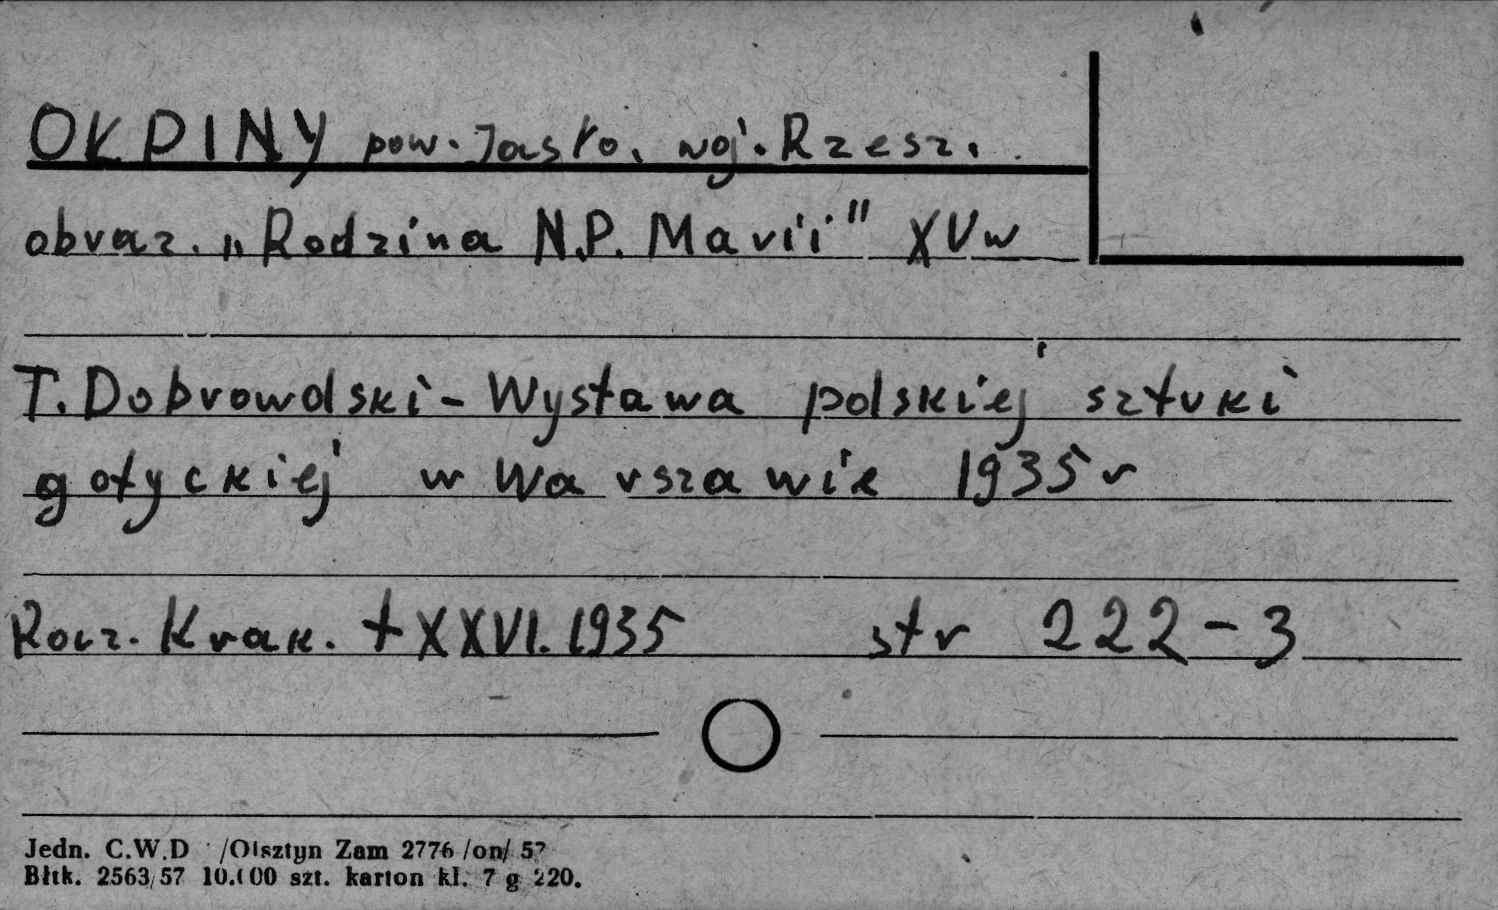 OKPINY pow. Jasło. woj. Rzesz.
obraz. „Rodzina N.P. Marii" XV w
T. Dobrowolski - Wystawa polskiej sztuki
gotyckiej w Warszawie 1935 r
Rocz. Krak. t XXVI. 1935 str 222-3
Jedn. C.W.D /Olsztyn Zam 2776 /on/ 57
Bltk. 2563/57 10.000 szt. karton kl. 7 g 220.